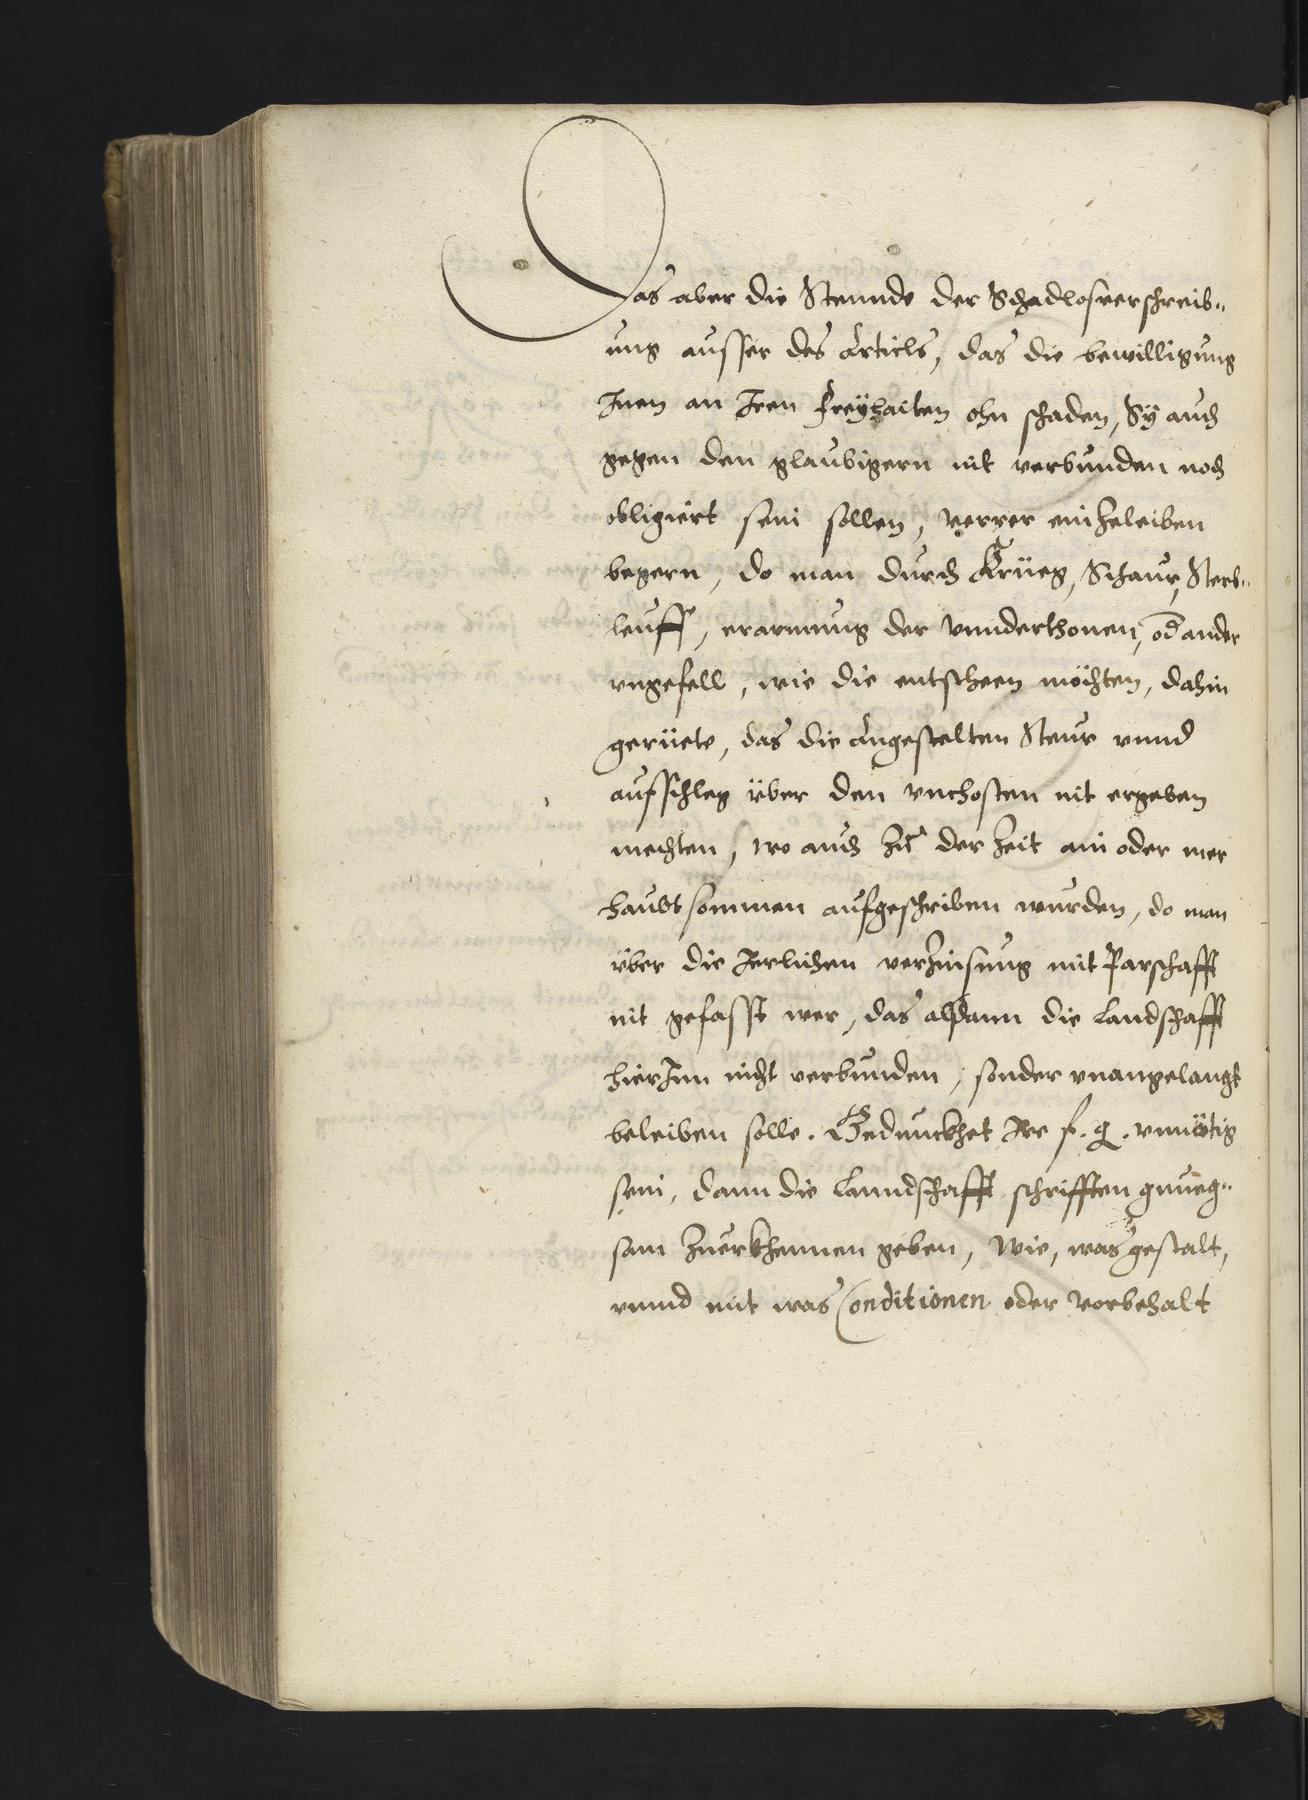 Das aber die Stennde der Schadlosverschreib-
ung ausser des Articls, das die bewilligung
Inen an Iren freyhaiten ohn schaden, Sÿ auch
gegen den glaubigern nit verbunden noch
obligiert sein sollen, verrer einzeleiben
begern, do man durch Krüeg, Schaur, Sterb-
leuff, erarmung der vnnderthonen, od ander
vngefell, wie die entsteen möchten, dahin
gerüete, das die angestelten Steur vnnd
aufschleg über den vnchosten nit ergeben
mechten, wo auch zu der zeit ain oder mer
haubtsommen aufgeschriben wurden, do man
über die Jerlichen verzinsung mit Parschafft
nit gefasst wer, das alßdann die Landschafft
hierInn nicht verbunden, sonder vnangelangt
beleiben solle. Gedunckhet Ire f. g. vnnötig
sein, dann die Lanndschafft schrifften gnueg-
sam zuerkhennen geben, Wie, was gestalt,
vnnd mit was Conditionen oder vorbehalt